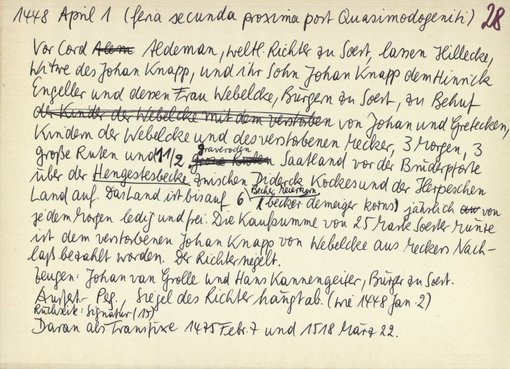 1448 April 1 (feria secunda proxima post Quasimodogeniti) 28
Vor Cord Alem Aldeman, weltl. Richter zu Soest, lassen Hillecke,
Witwe des Johan Knapp, und ihr Sohn Johan Knapp dem Hinrick
Engeller und dessen Frau Webelcke, Bürgern zu Soest, zu Behuf
der Kinder der Webelcke mit dem verstorben von Johan und Gretecken,
Kindern der Webelcke und des verstorbenen Mecker, 3 Morgen, 3
große Ruten und 11/2 graveroden große Ruten Saatland vor der Bruderpforte
über der Hengestesbecke zwischen Diderck Kockes und der Herpeschen
Land auf. Das Land ist bis auf 6 Becher Meierkorn (becker demeiger korns) jährlich aw von
jedem Morgen ledig und frei. Die Kaufsumme von 25 Mark Soester Münze
ist dem verstorbenen Johan Knapp von Webelcke aus Meckers Nach-
laß bezahlt worden. Der Richter siegelt.
Zeugen: Johan van Grolle und Hans Kannengeiter, Bürger zu Soest.
Ausfert. Perg., Siegel des Richter hängt ab. (wie 1448 Jan 2)
Rückseite: Signatur (15)
Daran als Transfixe 1475 Febr. 7 und 1518 März 22.